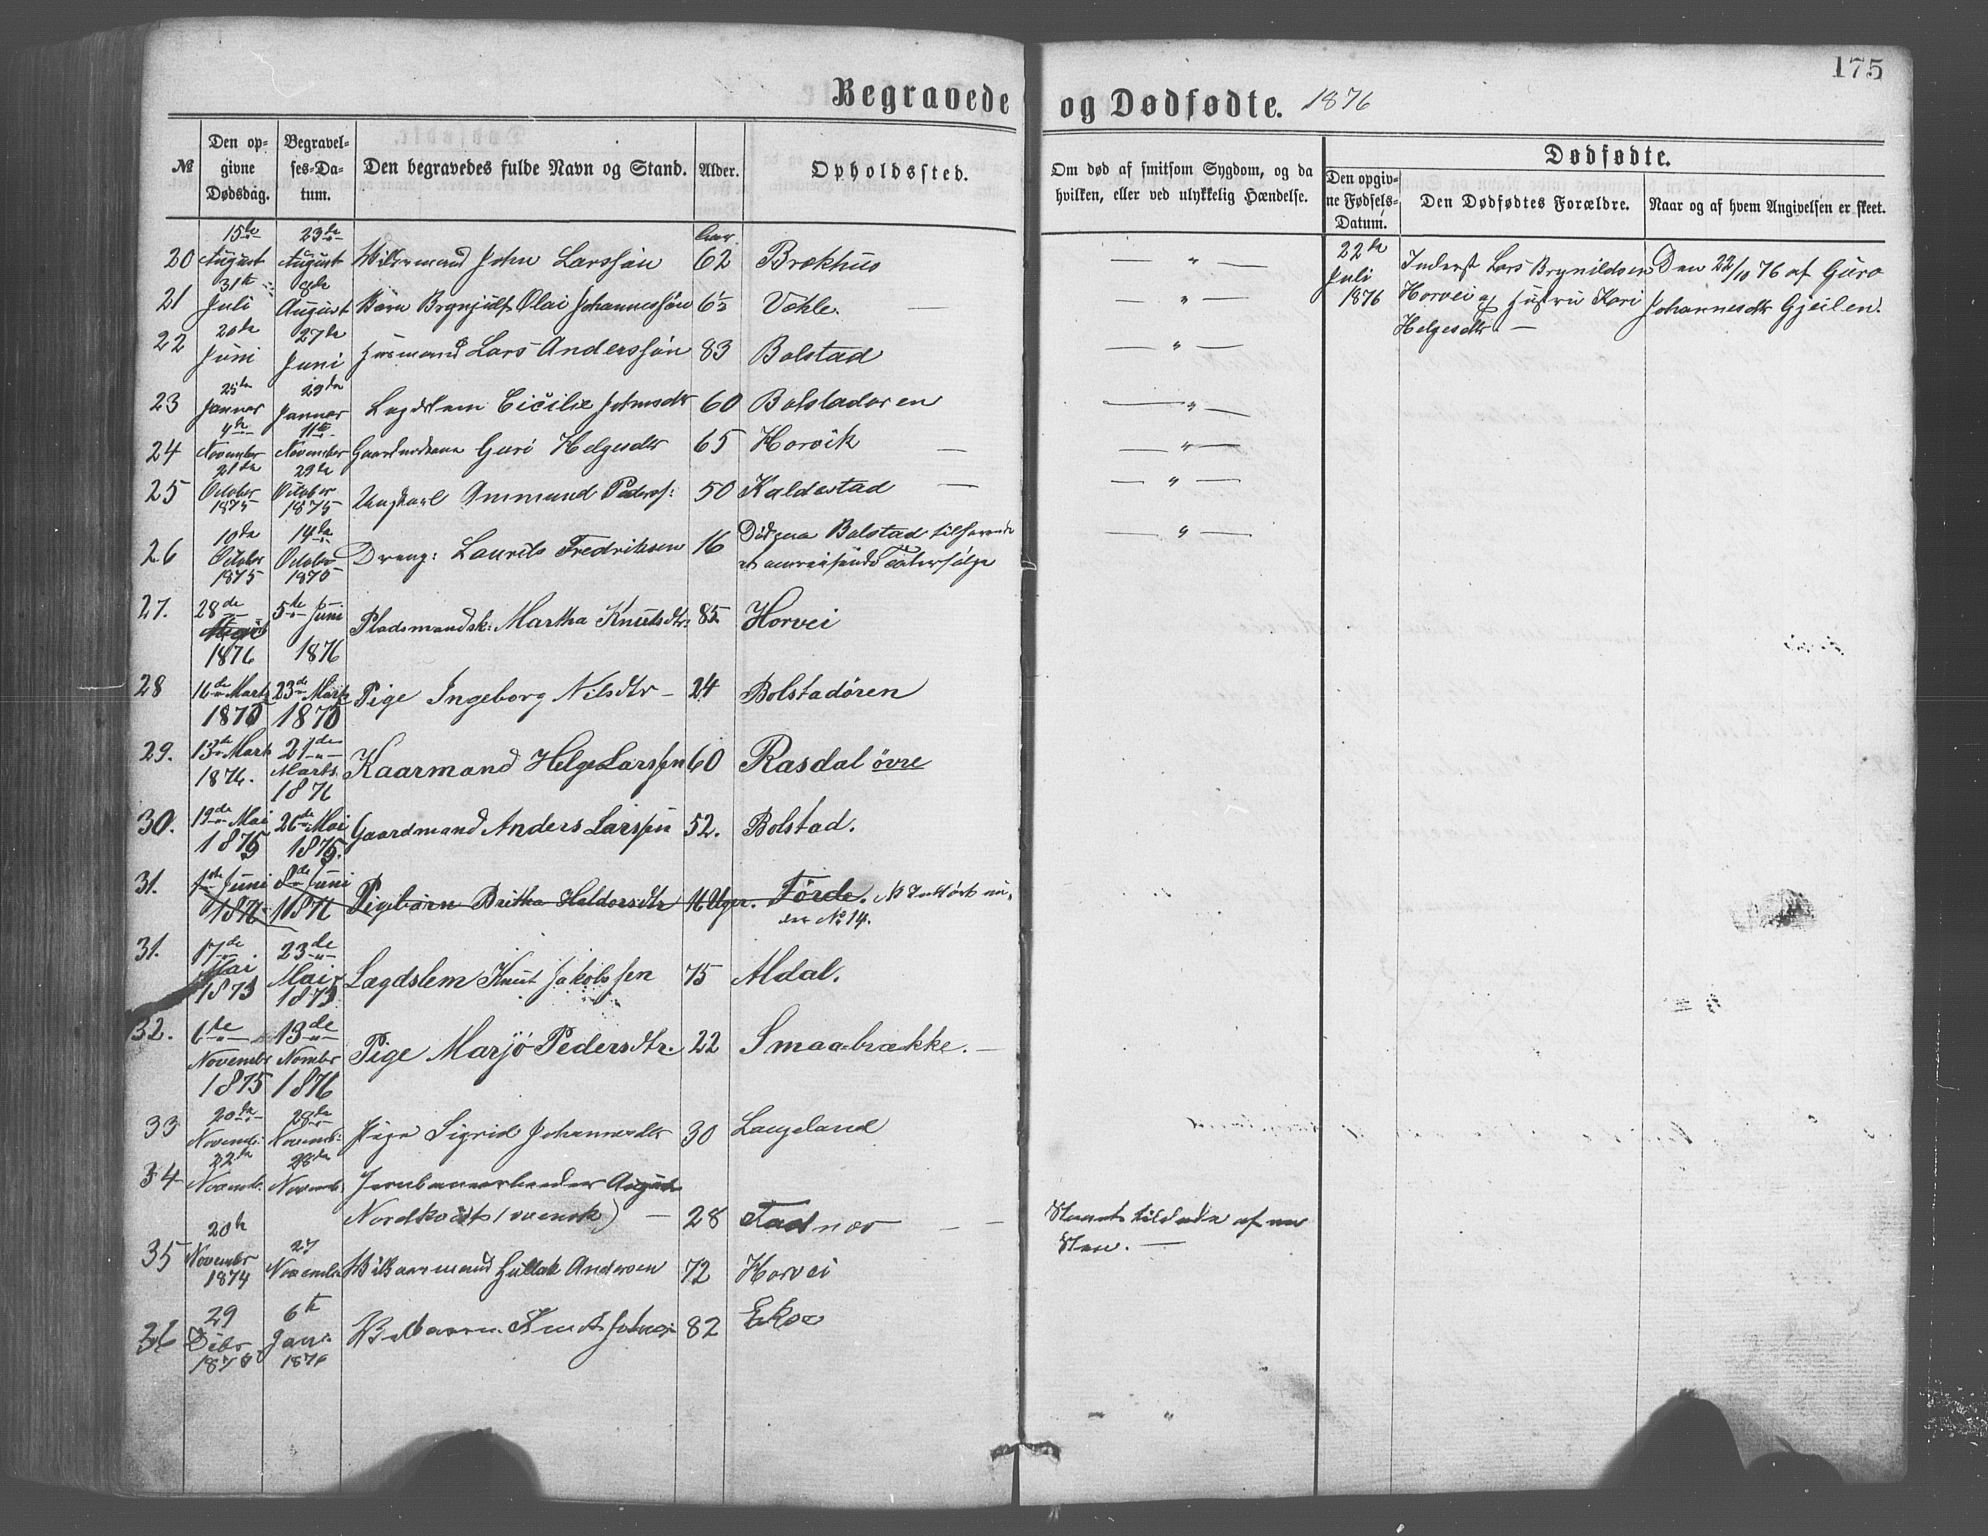 175
Begravede og Dødfødte. 1876
№
Den opgivne Dødsdag.
Begravelses-Datum.
Den begravedes fulde Navn og Stand.
Alder.
Opholdssted.
Om død af smitsom Sygdom, og da hvilken, eller ved ulykkelig Hændelse.
Dødfødte.
Den opgivne Fødsels-Datum.
Den Dødfødtes Forældre.
Naar og af hvem Angivelsen er skeet.
20 15de August 23de August John Larssøn 62 Brækhus — " —
21 31te Juli 8de August Barn Brynjulf Olai Johannessøn 6½ Vahle. — " —
22 20de Juni 27de Juni Husmand Lars Anderssøn 83 Bolstad — " —
23 25de Januar 29de Januar Lægdslem Cicilie Johnsdtr 60 Bolstadøren — " —
24 4de November 11te November Guri Helgesdtr 65 Horvik — " —
25 21de October 1875 29de October 1875 Ungkarl Ommund Peders: 50 Kaldestad — " —
26 10de October 1875 14de October 1875 Dreng: Laurits Fredriksen 16 Død paa Bolstad tilhørende
et omreisende Taterfølge — " —
27. 28de 1876 5te Juni 1876 Pladsmandsk: Martha Knutsdtr: 85 Horvei
28 16de Marts 1875 23de Marts 1875 Pige Ingeborg Nilsdtr 24 Bolstadøren
29. 13de Marts 1876. 21de Marts. 1876 Kaarmand Helge Larssen 60 Rasdal øvre
30. 19de Mai 1875 26de Mai 1875. Gaardmand Anders Larssen 52. Bolstad.
31. 1ste Juni 1876 8de Juni 1876 Pigebarn Britha Haldorsdtr 16 Uger. Førde. NB Indført un-
der No 14.
31. 17de Mai 1873 23de Mai 1873. Lægdslem Knut Jakobssen 75 Aldal.
32. 6de Novembr 1875 13de Nombr 1876 Pige Marjø Pedersdtr. 22 Smaabrække. —
33 20de Novemb: 28de Novemb: Pige Sigrid Johannesdtr 30 Langeland
34 22de Novemb. 28de Novemb. Jernbanearbeider August
Nordkvist (svensk) — 28 Fadnes — —
Steen. —
35 20de November 1874 27 November Andersen 72 Horvei
36 29 Debr 1875 6te Jan: 1876 Knut Johns: 82 Ekse
22de Juli 1876
Inderst Lars Brynildsen
Horvei og Hustru Kari
Helgesdtr —
Den 22/10 76 af Guro
Johannesdtr Gjeilen.